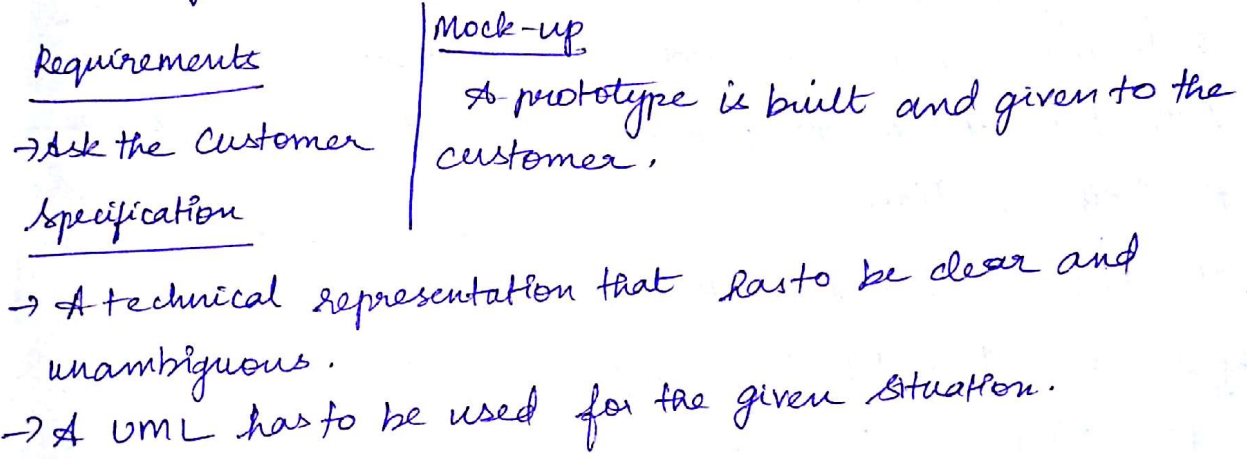 Requirements
→ Ask the customer
Mock-up
A prototype is built and given to the
customer.
Specification
→ A technical representation that has to be clear and
unambiguous.
→ A UML has to be used for the given situation.